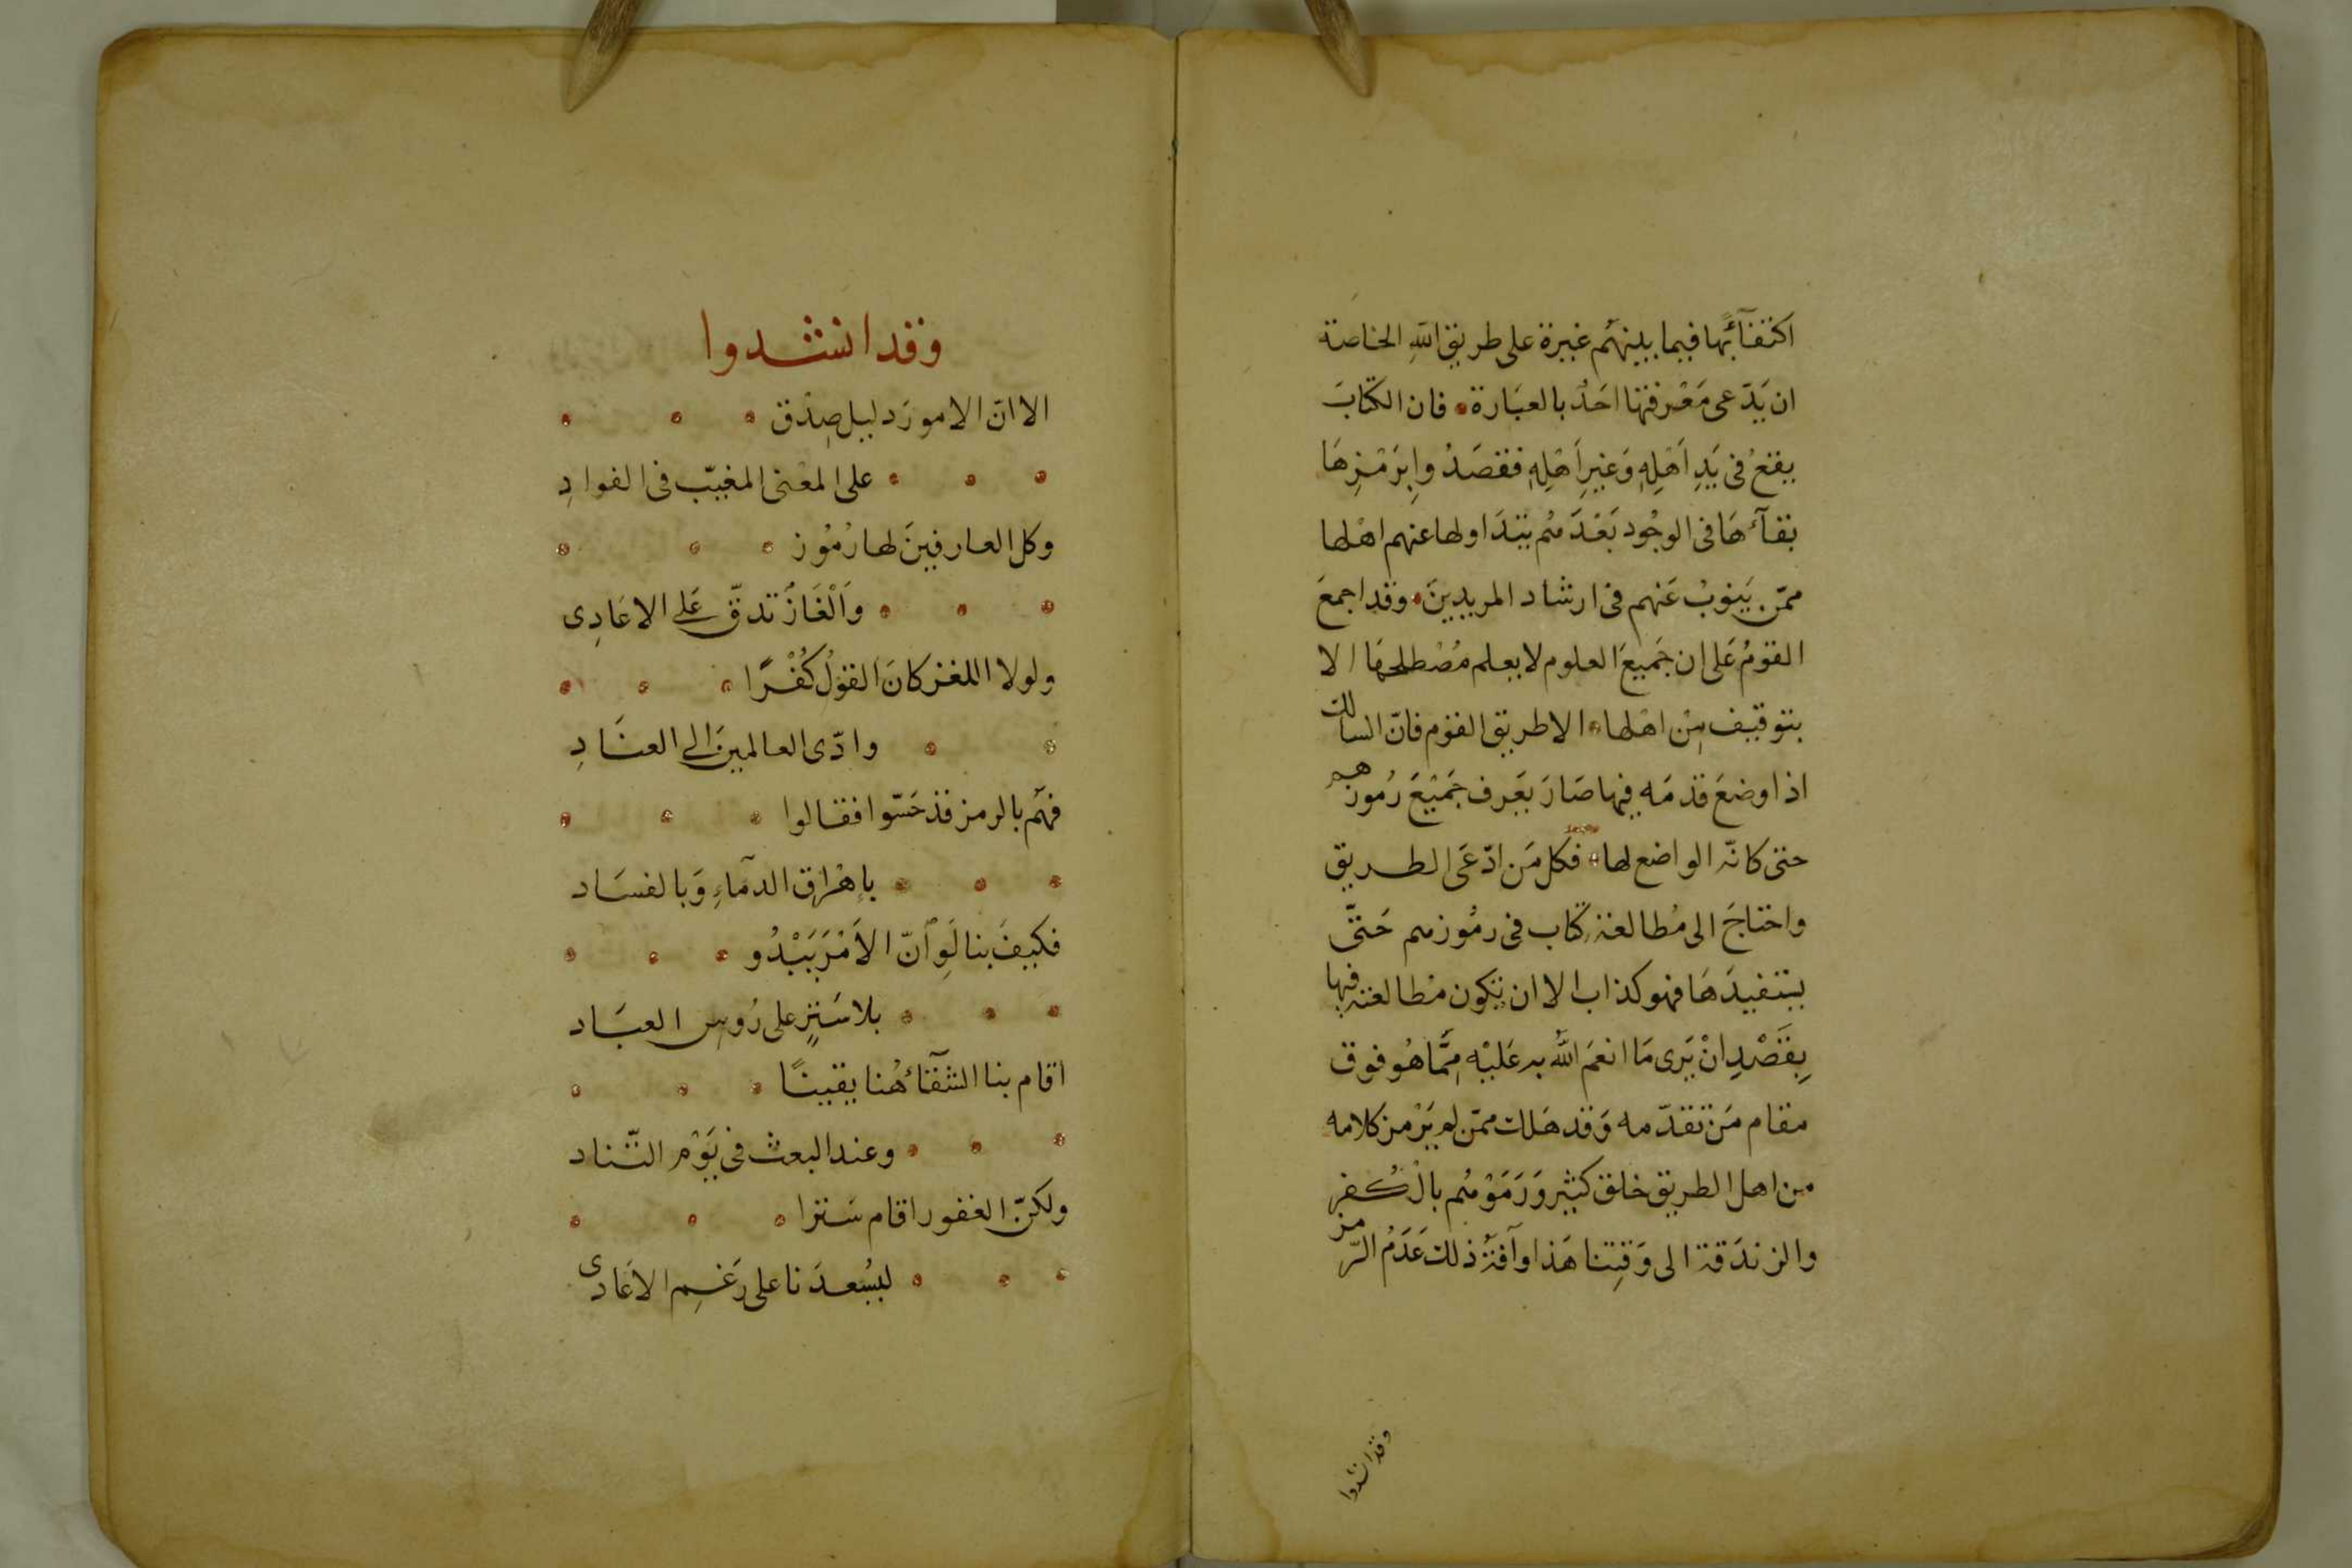 اكتفآئها فيما بينهم غيرة على طريق الله الخاصة
ان يَدّعى مَعْرفتها احَدٌ بالعبَارة فان الكتابَ
يقعُ فى يَدِ اَهْلِهِ وَغيرِ اَهْلِهِ فقصَدُوا بِرَمْزِهَا
بقآءهَا فى الوجُود بَعْدَهُم يتدَاولها عنهم اهْلها
ممّن يَنوبُ عَنهم فى ارشاد المريدينَ وقد اجمعَ
القومُ عَلى ان جَميعَ العلوم لا يعلم مُصْطلحهَا الا
بتوقيف مِنْ اهْلها الا طريق القوم فانّ السالك
اذا وضعَ قدمَه فيها صَارَ يَعرف جَمَيْعَ رُموزهم
حتى كانّه الواضع لها فكل مَن ادّعَى الطريق
واحتاجَ الى مُطالعة كتاب فى رمُوزهم حَتّى
يستفيدَهَا فهو كذاب الا ان يكون مطالعته فيها
بِقَصْدِ انْ يَرى مَا انعَمَ اللهُ به عَليْه مِمَّا هُو فوق
مقام مَن تقدّمه وَقد هَلك ممّن لم يَرْمز كلامه
من اهل الطريق خلق كثير وَرَمَوْهُم بالكُفر
والزندَقة الى وَقِتنا هَذا وآفةُ ذلك عَدَمُ الرّمز
وقد انشدوا
وقد انشدوا
الا انّ الامورَ دليل صِدْق
على المعْنى المغيّب فى الفوادِ
وكل العارفينَ لها رُمُوز
واَلْغَازُ تدقّ عَلى الاعَادِى
ولولا اللغز كانَ القوْلُ كُفْرًا
وادّى العالمينَ الى العنَادِ
فهُم بالرمز قد حَسّوا فقالوا
بإهْراق الدمَاءِ وَبالفسَاد
فكيفَ بنا لَوِ اَنّ الاَمْرَ يَبْدُو
بلا سَتِرٍ على رُوس العبَاد
اقام بنا الشقآءُ هُنا يقينًا
وعند البعث فى يَوْم التّناد
ولكنّ الغفور اقام سَترا
ليُسعدَنا على رَغمِ الاعَادى